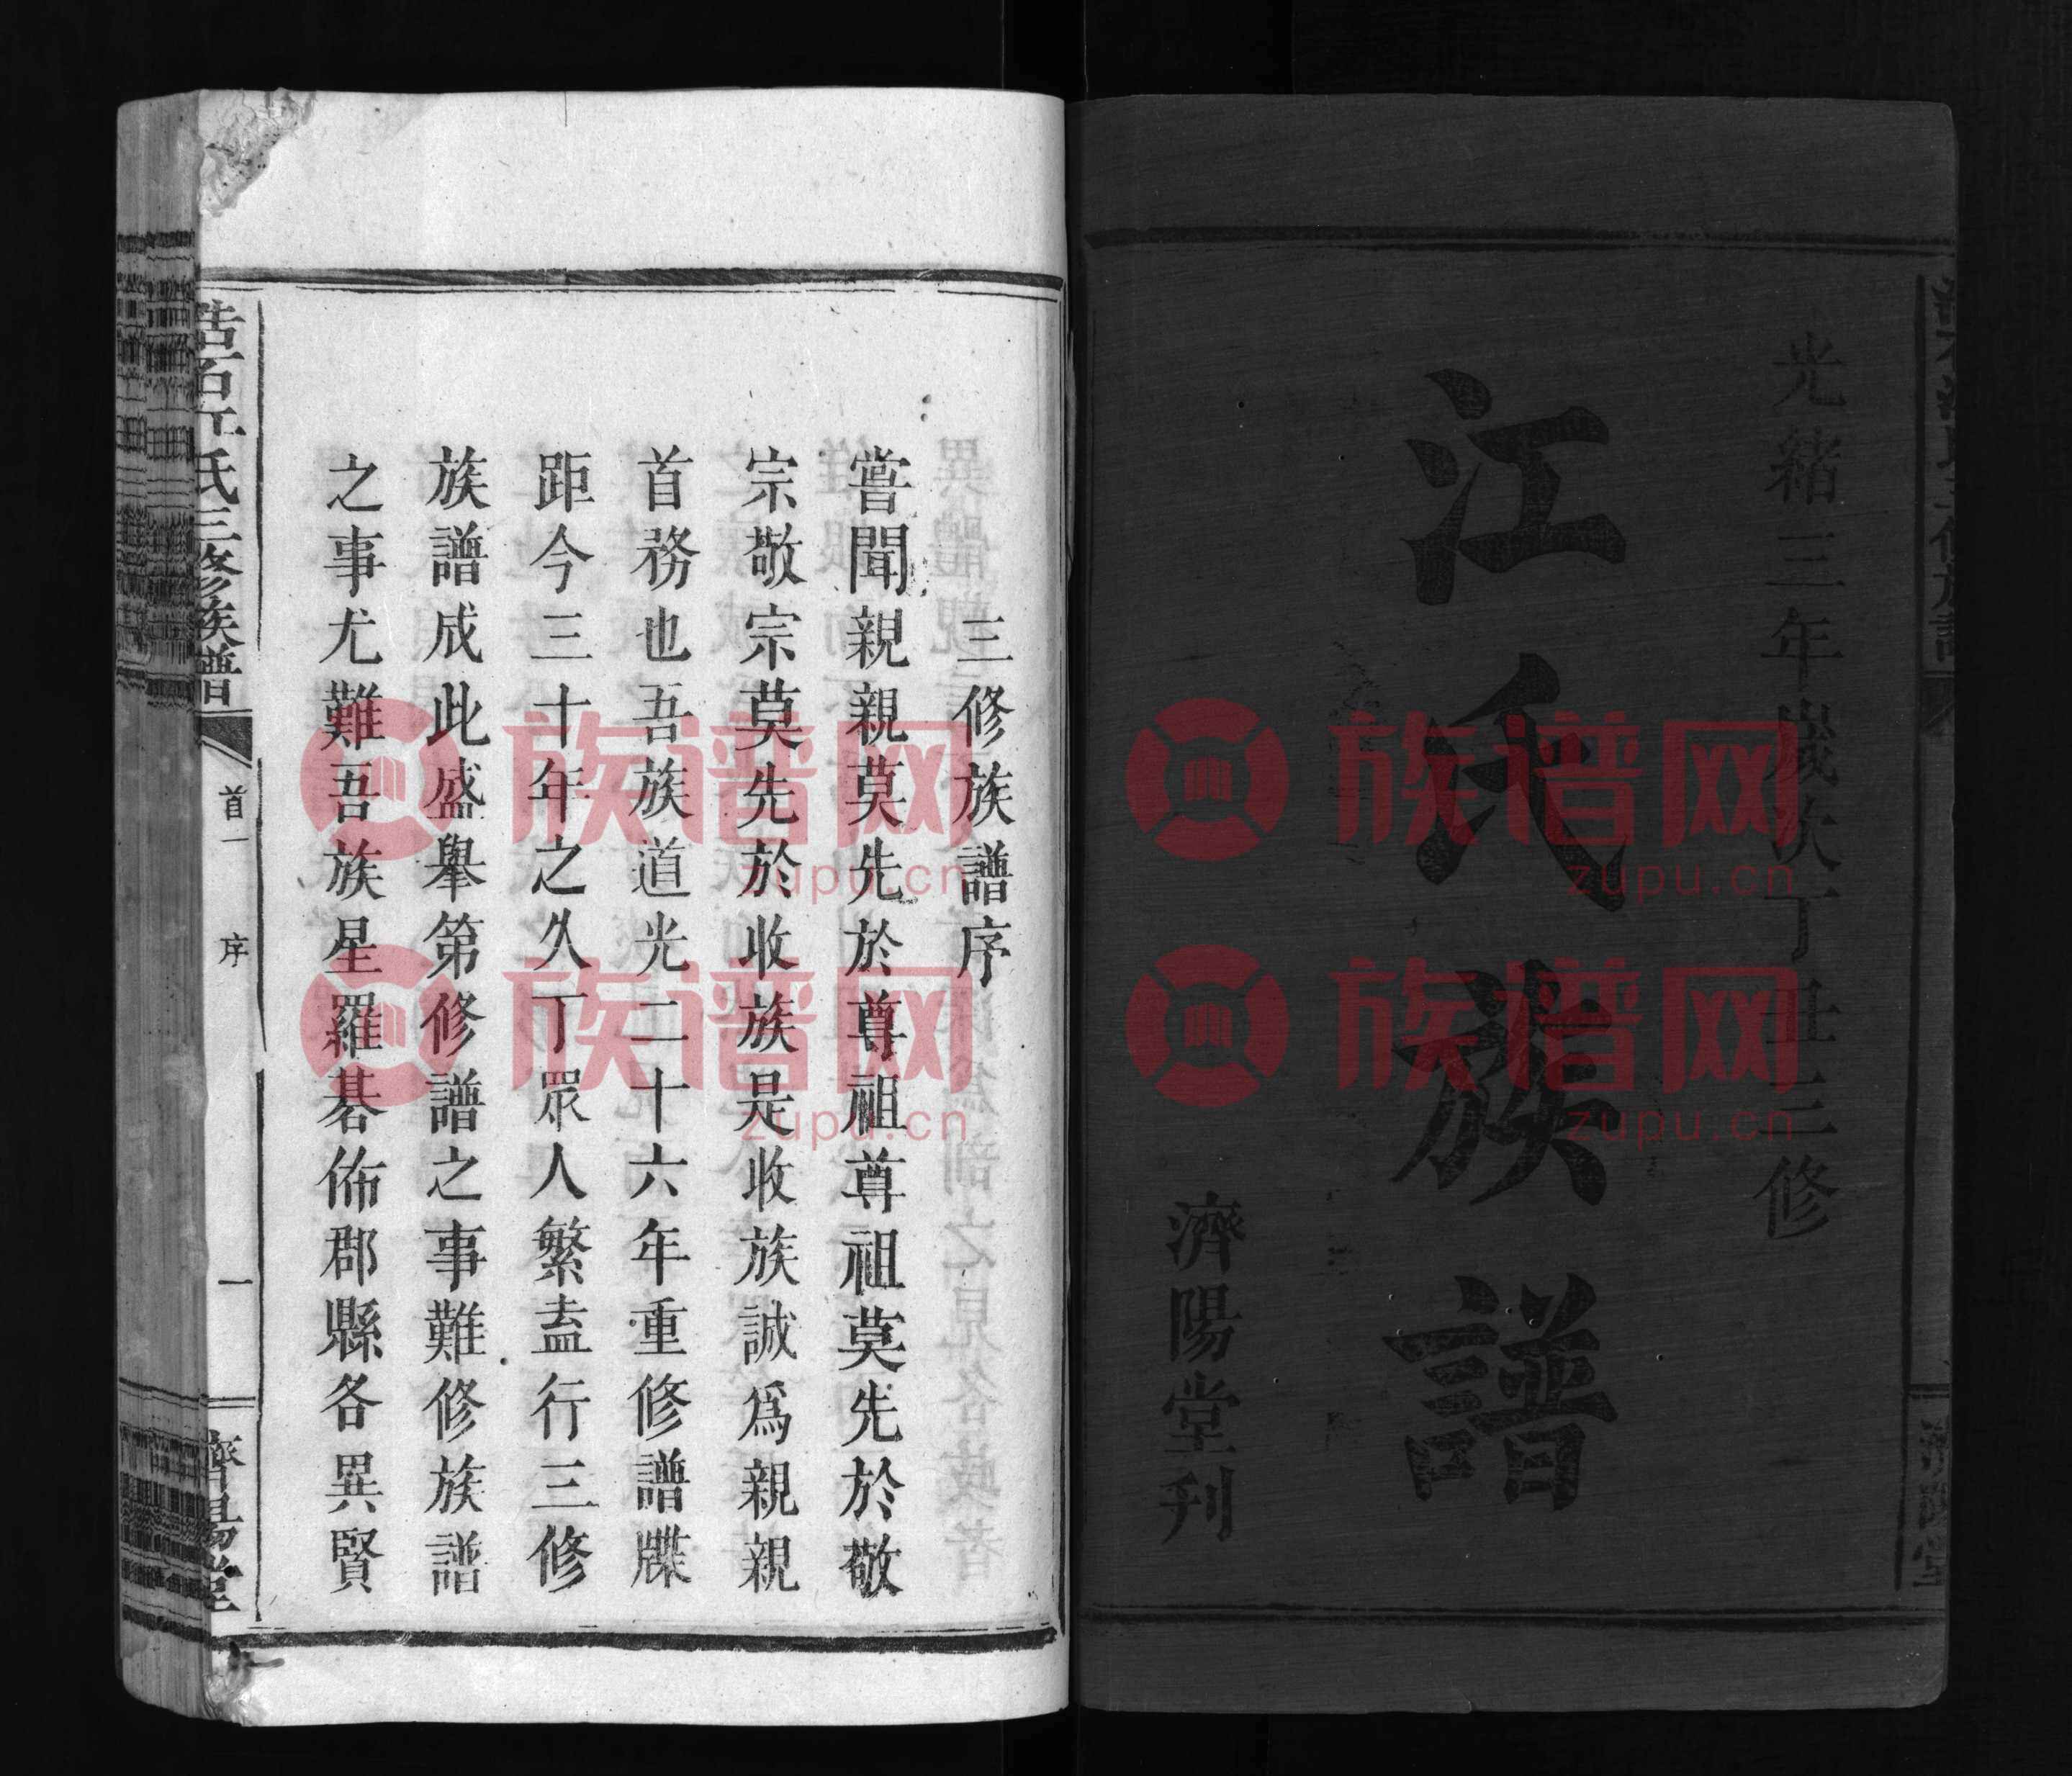 光緒三年歲次丁丑三修
江氏族譜
濟陽堂刊
三修族譜序
嘗聞親親莫先於尊祖尊祖莫先於敬
宗敬宗莫先於收族是收族誠為親親
首務也吾族道光二十六年重修譜牒
距今三十年之久丁眾人繁盍行三修
族譜成此盛舉第修譜之事難修族譜
之事尤難吾族星羅碁佈郡縣各異賢
石江氏三修族譜
首一
序
一
濟陽堂
族谱网
zupu.cn
族谱网
zupu.cn
族谱网
zupu.cn
族谱网
zupu.cn